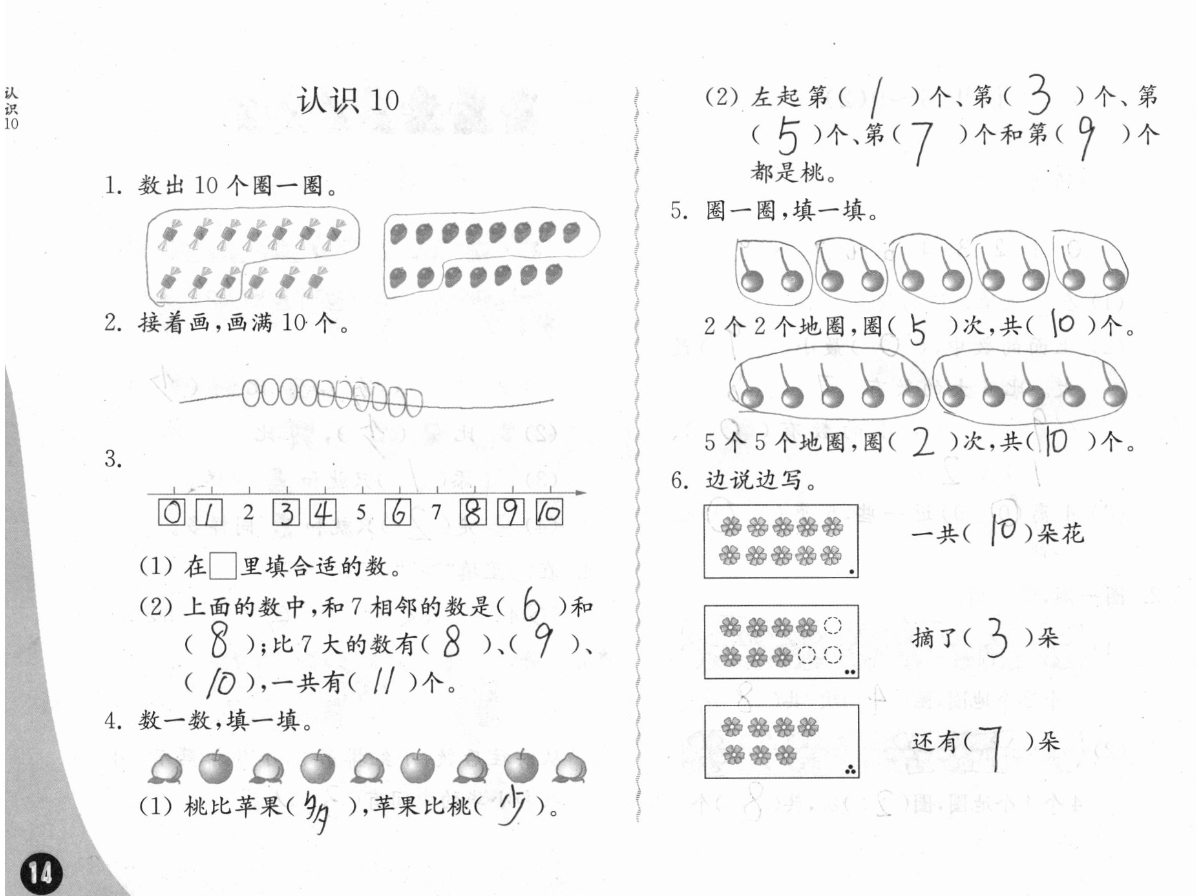 认识10
认识 10
1. 数出 10 个圈一圈。
2. 接着画,画满 10 个。
3.
0 1 2 3 4 5 6 7 8 9 10
(1) 在□里填合适的数。
(2) 上面的数中,和 7 相邻的数是( 6 )和
( 8 );比 7 大的数有( 8 )、( 9 )、
( 10 ),一共有( 11 )个。
4. 数一数,填一填。
(1) 桃比苹果( 多 ),苹果比桃( 少 )。
14
(2) 左起第( 1 )个、第( 3 )个、第
( 5 )个、第( 7 )个和第( 9 )个
都是桃。
5. 圈一圈,填一填。
2 个 2 个地圈,圈( 5 )次,共( 10 )个。
5 个 5 个地圈,圈( 2 )次,共( 10 )个。
6. 边说边写。
一共( 10 )朵花
摘了( 3 )朵
还有( 7 )朵